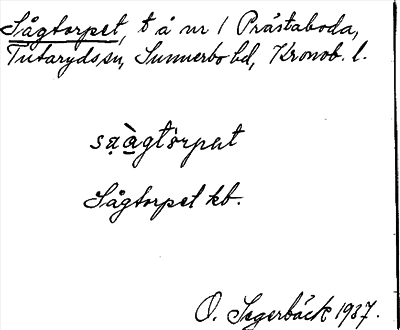 Sågtorpet, t å nr 1 Prästaboda,
Tutaryds sn, Sunnerbo hd, Kronob. l.
Sågtorpet kb.
O. Segerbäck 1937.